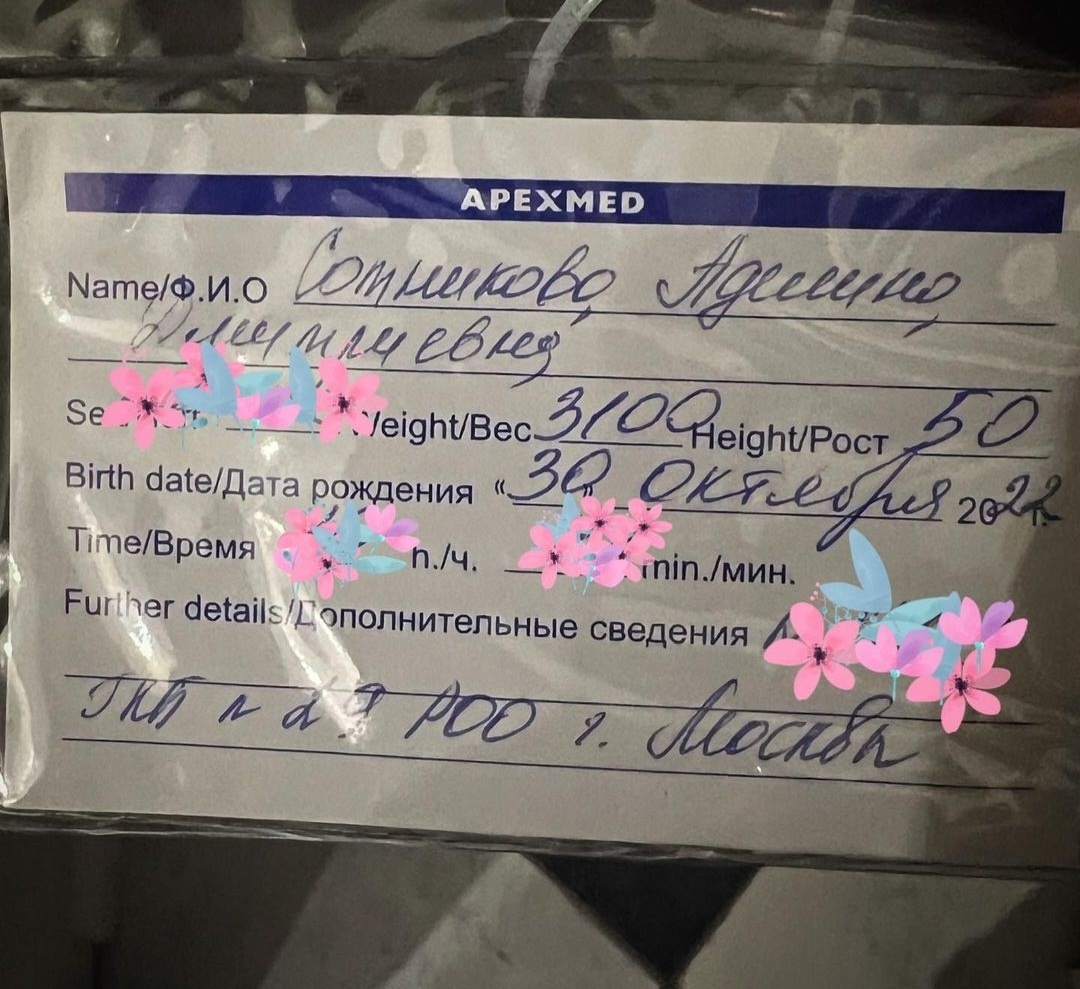 APEXMED
Name/Ф.И.О Сотникова Аделина
Дмитриевна
Weight/Вес 3100 Height/Рост 50
Birth date/Дата рождения « 30 » Октября 2022 г.
Time/Время h./ч. min./мин.
Further details/Дополнительные сведения
ГКБ № РОО г. Москвы